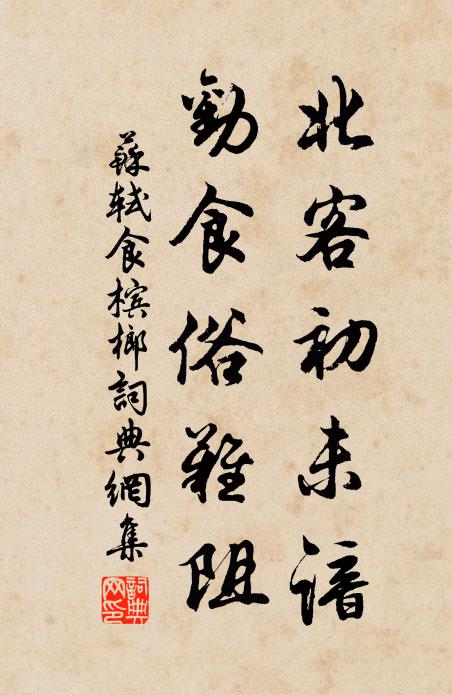 北客初未諳
勸食俗難阻
蘇軾食檳榔詞典網集
詞典網印